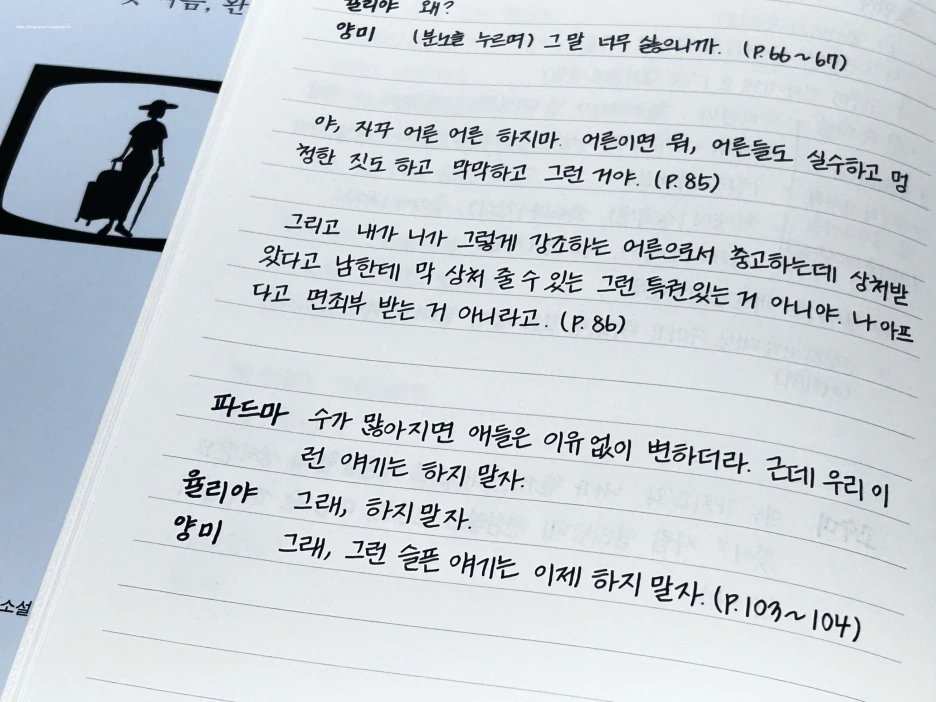 율리야 왜?
양미 (분노를 누르며) 그 말 너무 싫으니까. (P.66~67)
야, 자꾸 어른 어른 하지마. 어른이면 뭐, 어른들도 실수하고 멍
청한 짓도 하고 막막하고 그런 거야. (P.85)
그리고 내가 니가 그렇게 강조하는 어른으로서 충고하는데 상처받
았다고 남한테 막 상처 줄 수 있는 그런 특권있는 거 아니야. 나 아프
다고 면죄부 받는 거 아니라고. (P.86)
파드마 수가 많아지면 애들은 이유없이 변하더라. 근데 우리 이
런 얘기는 하지 말자.
율리야 그래, 하지 말자.
양미 그래, 그런 슬픈 얘기는 이제 하지 말자. (P.103~104)
소설